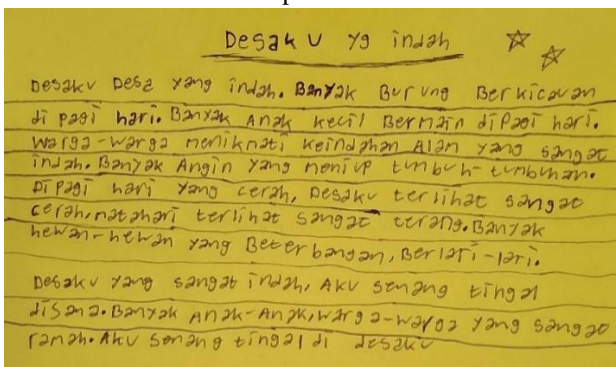 Desaku yg indah
Desaku Desa yang indah. Banyak Burung Berkicauan
di pagi hari. Banyak Anak kecil Bermain di pagi hari.
Warga-warga menikmati keindahan Alam yang sangat
indah. Banyak Angin yang meniup tumbuh-tumbuhan.
Dipagi hari yang cerah, Desaku terlihat sangat
cerah, matahari terlihat sangat terang. Banyak
hewan-hewan yang Beterbangan, Berlari-lari.
Desaku yang sangat indah, Aku senang tingal
disana. Banyak Anak-Anak, warga-warga yang sangat
ramah. Aku senang tingal di desaku